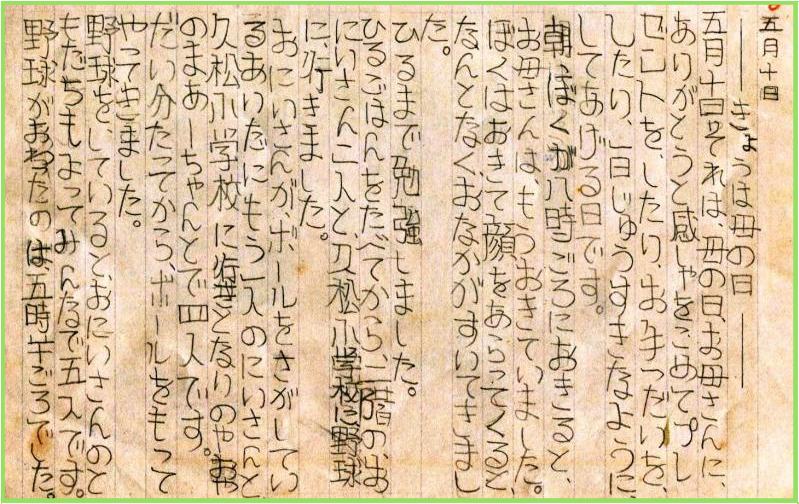 五月十日
―― きょうは母の日 ――
五月十日それは、母の日、お母さんに、
ありがとうと感しゃをこめてプレ
ゼントを、したりお手つだいを、
したり、一日じゅうすきなように、
してあげる日です。
朝ぼくが八時ごろにおきると、
お母さんはもうおきていました。
ぼくはおきて顔をあらってくると、
なんとなくおなかがすいてきまし
た。
ひるまで勉強しました。
ひるごはんをたべてから、二階の、お
にいさん二人と久松小学校に野球
に、行きました。
おにいさんが、ボールをさがしてい
るあいだにもう一人のにいさんと
久松小学校に行きとなりのやおや
のまあーちゃんとで四人です。
だい分たってから、ボールをもって
やってきました。
野球を、しているとおにいさんのと
もだちもよってみんなで五人です。
野球がおわたのは、五時半ごろでした。